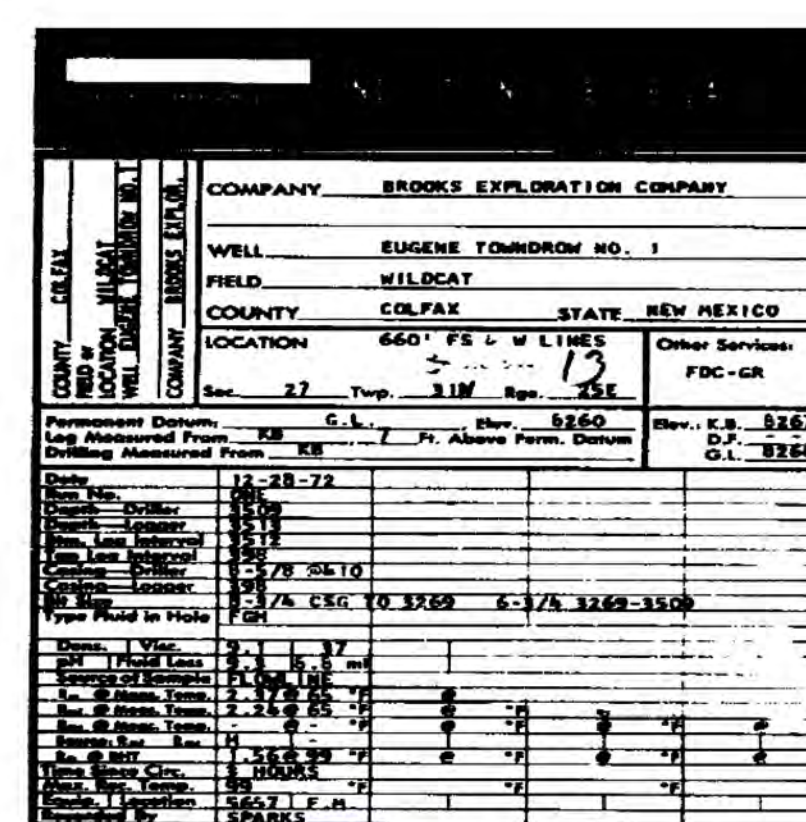 COMPANY BROOKS EXPLORATION COMPANY
WELL EUGENE TOWNDROW NO. 1
FIELD WILDCAT
COUNTY COLFAX STATE NEW MEXICO
COUNTY COLFAX
FIELD or
LOCATION WILDCAT
WELL EUGENE TOWNDROW NO. 1
COMPANY BROOKS EXPLOR.
LOCATION 660' FS & W LINES
13
Sec. 27 Twp. 31N Rge. 25E
Other Services:
FDC-GR
Permanent Datum: G.L. Elev. 8260
Log Measured From KB 7 Ft. Above Perm. Datum
Drilling Measured From KB
Elev.: K.B. 8267
D.F. --
G.L. 8260
Date 12-28-72
Run No. ONE
Depth—Driller 3509
Depth—Logger 3513
Btm. Log Interval 3512
Top Log Interval 398
Casing—Driller 8-5/8 @410
Casing—Logger 398
Bit Size CSG TO 3269 6-3/4 3269-3509
Type Fluid in Hole FGM
Dens. Visc. 9.1 37
pH Fluid Loss 9.3 ml
Source of Sample FLOWLINE
Rm @ Meas. Temp. 2.37 @ 65 °F @
Rmf @ Meas. Temp. 2.24 @ 65 °F @ °F
Rmc @ Meas. Temp. - @ - °F @ °F @ °F @
Source: Rmf Rmc M -
Rm @ BHT 1.56 @ 99 °F @ °F @ °F @
Time Since Circ. HOURS
Max. Rec. Temp. 99 °F °F °F
Equip. Location 5657 F.M
Recorded By SPARKS